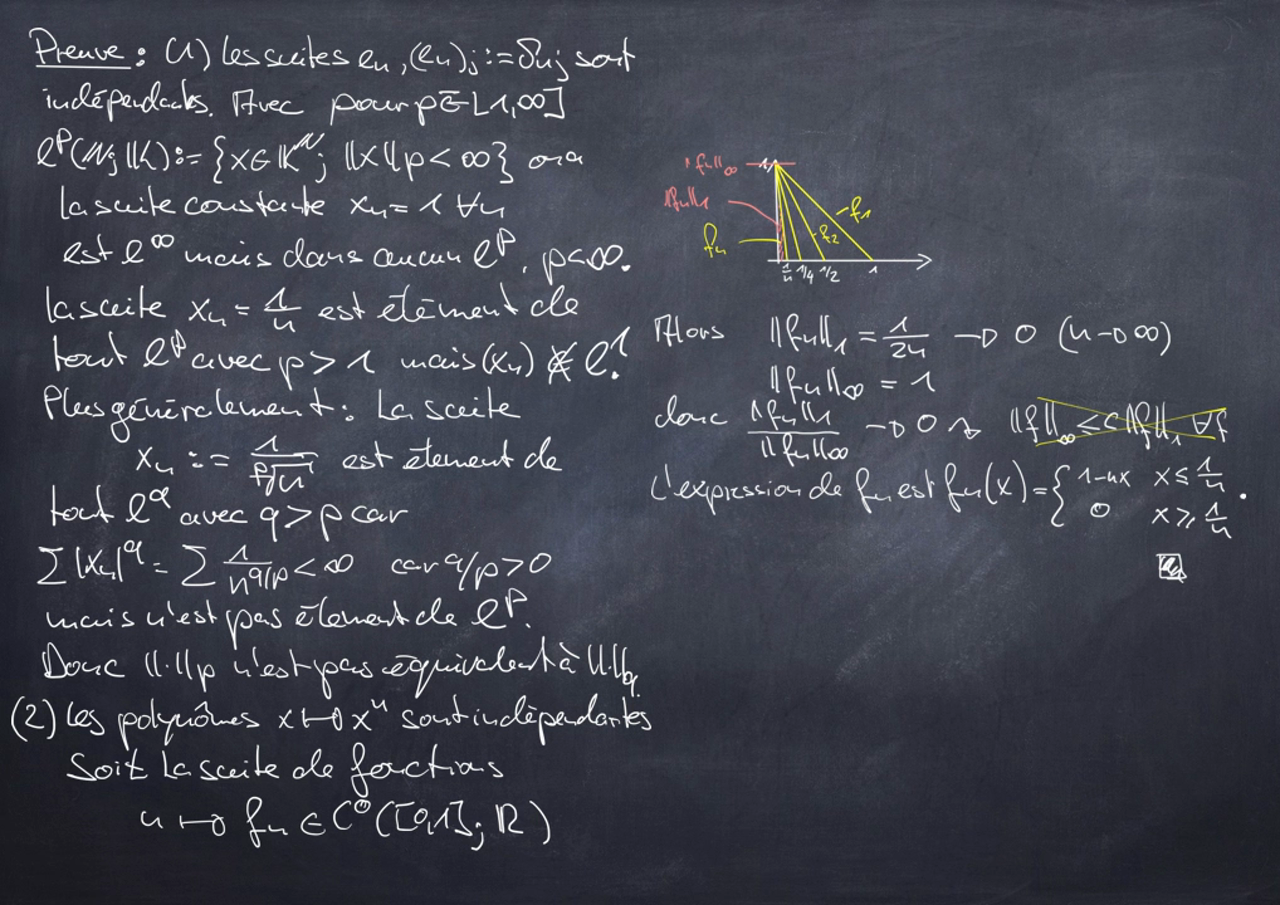 Preuve : (1) Les suites eₙ, (eₙ)ⱼ := δₙⱼ sont
indépendants. Avec pour p ∈ [1,∞]
ℓᵖ(ℕ; 𝕂) := {x ∈ 𝕂^ℕ ; ||x||p < ∞} on a
la suite constante xₙ = 1 ∀n
est ℓ^∞ mais dans aucun ℓᵖ, p<∞.
la suite xₙ = 1/n est élément de
tout ℓᵖ avec p > 1 mais (xₙ) ∉ ℓ¹.
Plus généralement : La suite
xₙ := 1/ᵖ√n est élement de
tout ℓ^q avec q > p car
∑ |xₙ|^q = ∑ 1/n^(q/p) < ∞ car q/p > 0
mais n'est pas élement de ℓᵖ.
Donc ||·||p n'est pas équivalent à ||·||q.
(2) Les polynômes x ↦ xⁿ sont indépendantes
Soit La suite de fonctions
n ↦ fₙ ∈ C⁰([0,1]; ℝ)
||fₙ||∞ 1
||fₙ||₁
fₙ f₂ f₁
1/n 1/4 1/2 1
Alors ||fₙ||₁ = 1/2n → 0 (n → ∞)
||fₙ||∞ = 1
donc ||fₙ||₁/||fₙ||∞ → 0 ⇝ ||f||∞ ≤ c ||f||₁ ∀f
L'expression de fₙ est fₙ(x) = { 1-nx x ≤ 1/n .
0 x ≥ 1/n